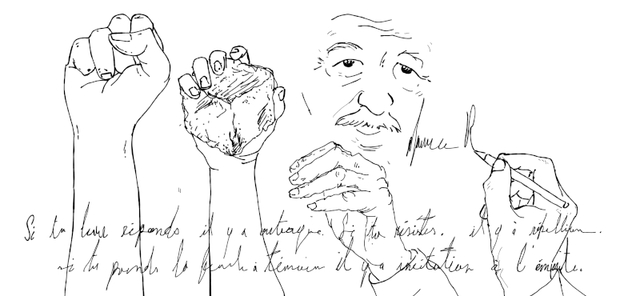 Maurice R
Si tu leur réponds il y a outrage. Si tu résistes. il y a rébellion.
si tu prends la foule à témoin il y a incitation à l'émeute.